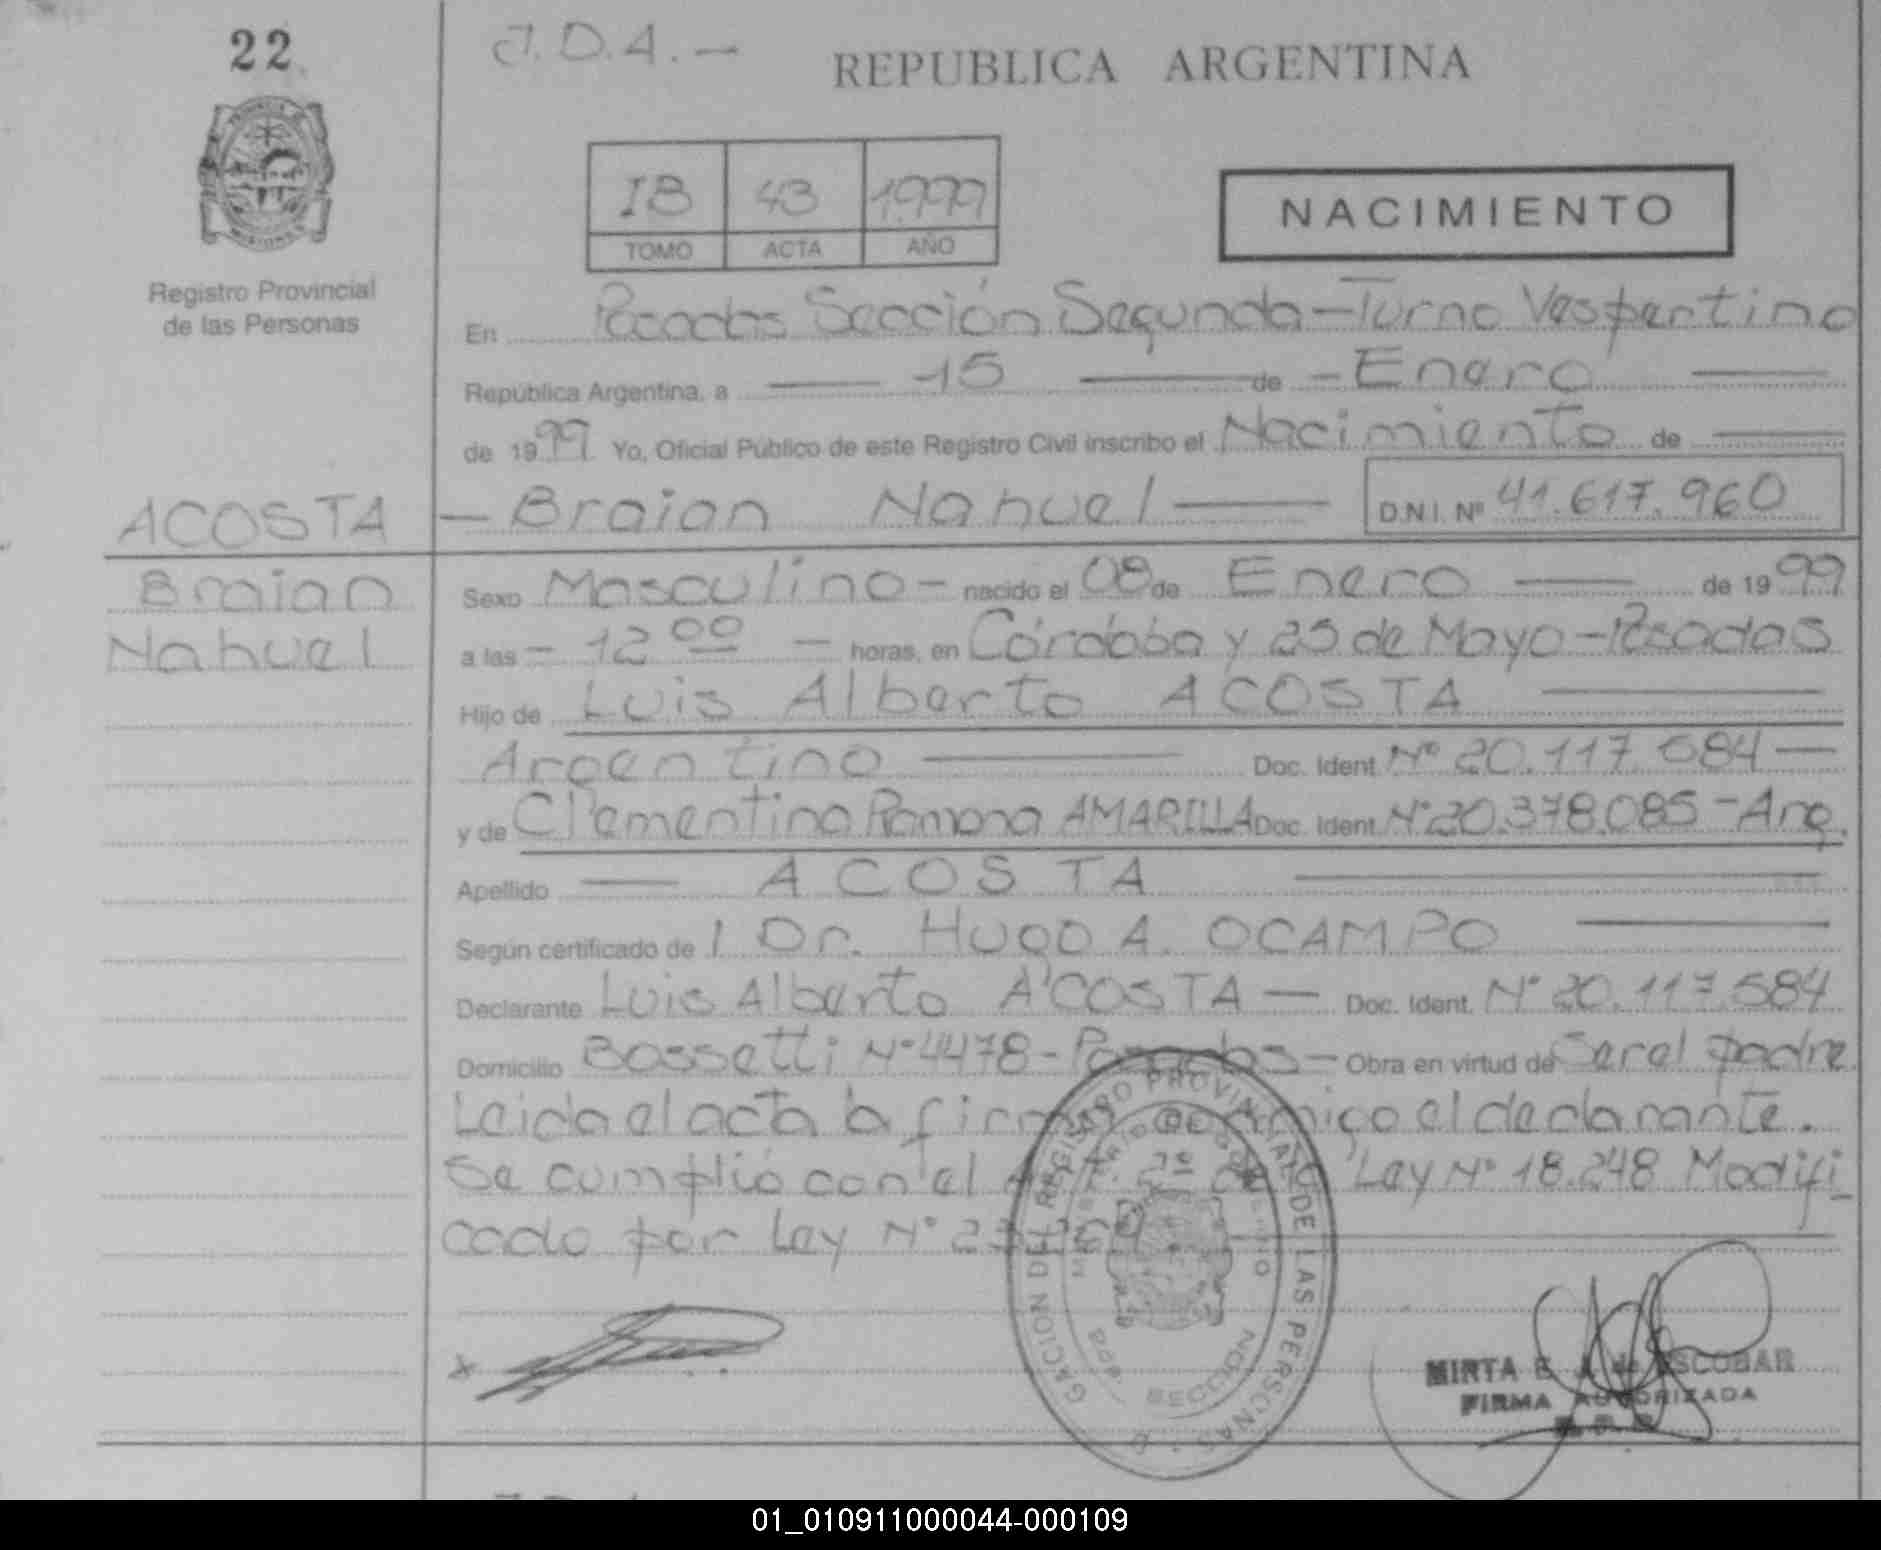 22
J.D.A.-
REPUBLICA ARGENTINA
IB 43 1.999
TOMO ACTA AÑO
NACIMIENTO
Registro Provincial
de las Personas
En Posadas Sección Segunda - Turno Vespertino
República Argentina, a 15 de - Enero
de 1999 Yo, Oficial Público de este Registro Civil inscribo el Nacimiento de
ACOSTA - Braian Nahuel D.N.I. Nº 41.617.960
Braian
Nahuel
Sexo Masculino - nacido el 08 de Enero de 1999
a las - 12 00 - horas, en Córdoba y 25 de Mayo - Posadas
Hijo de Luis Alberto ACOSTA
Argentino Doc. Ident. Nº 20.117.584 -
y de Clementina Ramona AMARILLA Doc. Ident. Nº 20.378.085 - Arg.
Apellido - ACOSTA
Según certificado de l Dr. HUGO A. OCAMPO
Declarante Luis Alberto ACOSTA - Doc. Ident. Nº 20.117.584
Domicilio Bossetti Nº 4478 - Posadas - Obra en virtud de Ser el padre
Leida el acta la firma conmigo el declarante.
Se cumplió con el Art. 2º de la Ley Nº 18.248 Modifi
cado por Ley Nº
REGISTRO PROVINCIAL DE LAS PERSONAS
SECCION
MIRTA E. ESCOBAR
FIRMA AUTORIZADA
01_010911000044-000109